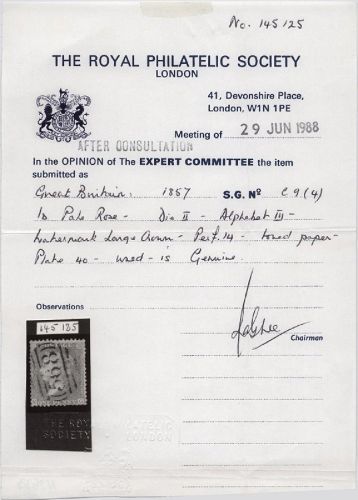 No. 145125
THE ROYAL PHILATELIC SOCIETY
LONDON
41, Devonshire Place,
London, W1N 1PE
Meeting of 29 JUN 1988
AFTER CONSULTATION
In the OPINION of The EXPERT COMMITTEE the item
submitted as
Great Britain, 1857 S.G. Nº C9(4)
1d Pale Rose - Die II - Alphabet III -
Watermark Large Crown - Perf. 14 - toned paper -
Plate 40 - used - is Genuine.
Observations
Chairman
145125
THE ROYAL PHILATELIC
SOCIETY LONDON